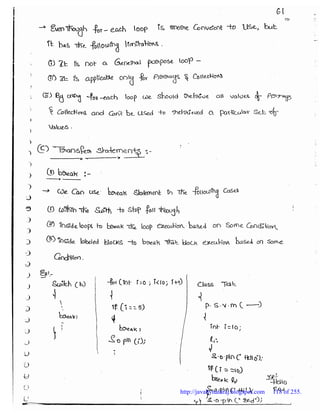 61
→ Even though for-each loop is more Convenient to Use, but
it has the following limitations.
(1) It is not a General purpose loop –
(2) It is applicable only for Arrays & Collections
(3) By using for-each loop we should retrieve all values of Arrays
& Collections and Can't be used to retrieve a particular Set of
Values.
(C) Transfer statements :-
(1) break :-
→ We Can use break Statement in the following Cases
(1) Within the Switch, to Stop fall through
(2) Inside loops to break the loop execution based on Some Condition,
(3) Inside labeled blocks to break that block execution based on some
Condition.
Ex:-
Switch (b)
{
break;
}
for (int i=0 ; i<10; i++)
{
if (i==5)
break;
S.o.pln (i);
}
Class Test
{
P. S. V. m ( — )
{
int i=10;
l1:
{
S.o.pln (" Hello");
if (i==10)
break l1;
Hello
S.o.pln (" end");
http://javabynatara
spot.com
of 255.